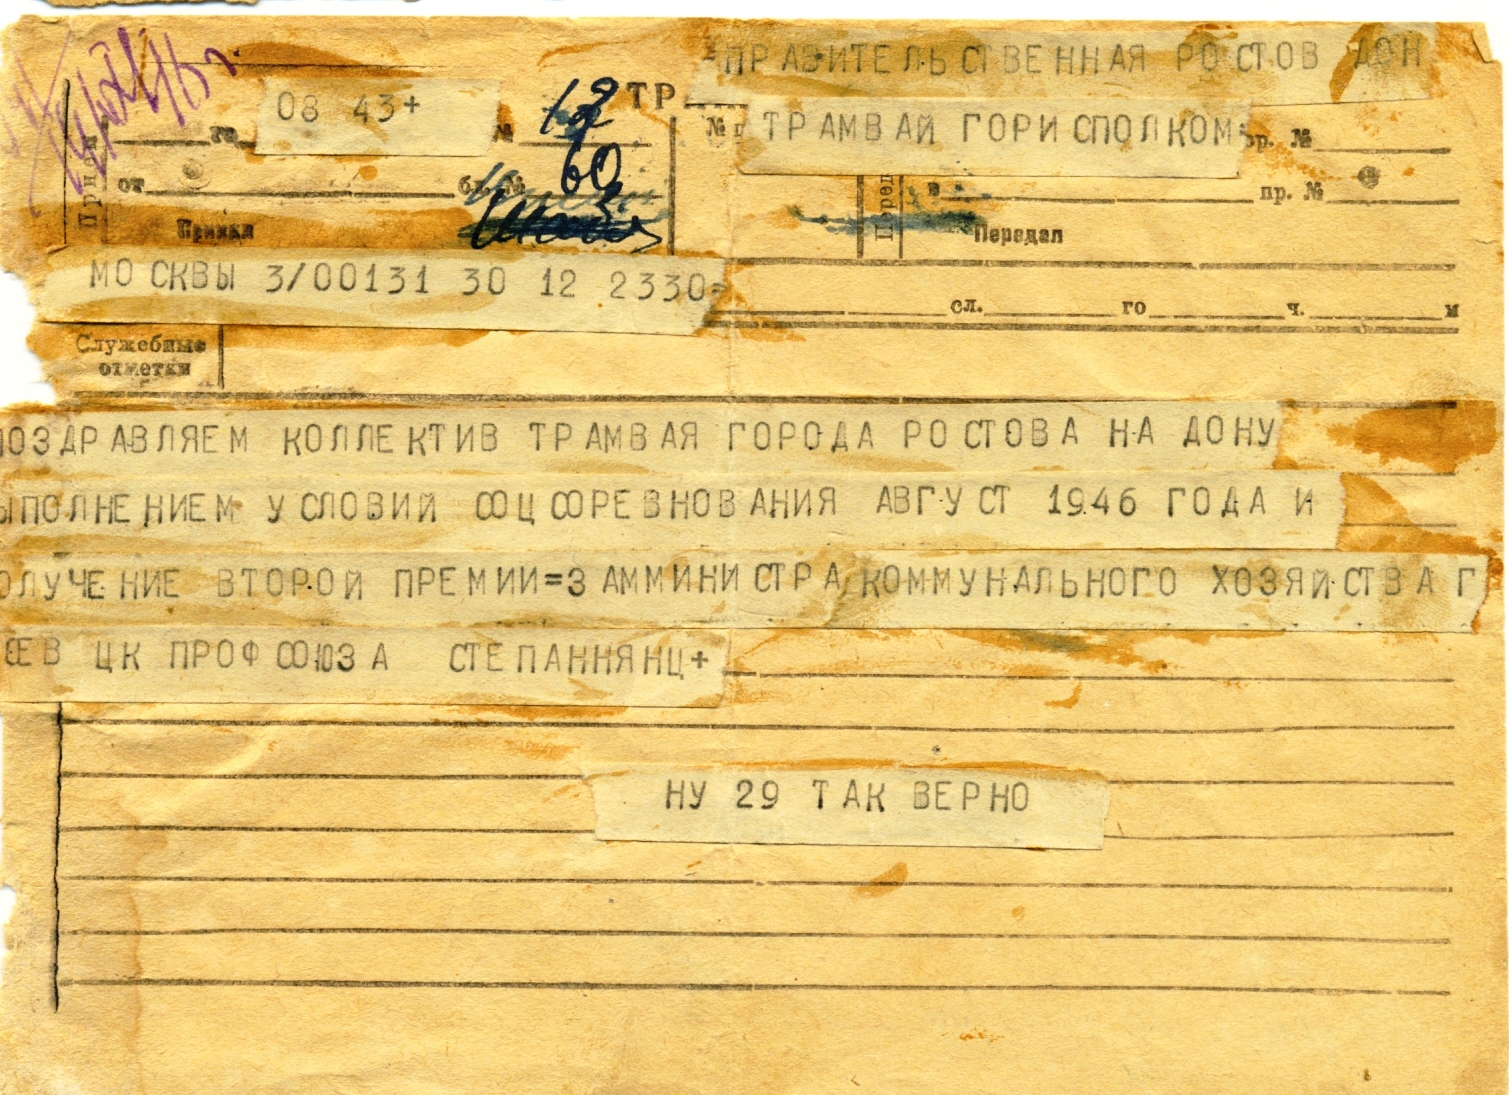 ПРАВИТЕЛЬСТВЕННАЯ РОСТОВ ДОН
08 43+
ТРАМВАЙ ГОРИСПОЛКОМ
го № 12 №
пр. №
60
от бл. №
в пр. №
Прием
Принял
Передал
МОСКВЫ 3/00131 30 12 2330=
сл. го ч. м
Служебные
отметки
ПОЗДРАВЛЯЕМ КОЛЛЕКТИВ ТРАМВАЯ ГОРОДА РОСТОВА НА ДОНУ
ЫПОЛНЕНИЕМ УСЛОВИЙ СОЦСОРЕВНОВАНИЯ АВГУСТ 1946 ГОДА И
ОЛУЧЕНИЕ ВТОРОЙ ПРЕМИИ=ЗАММИНИСТРА КОММУНАЛЬНОГО ХОЗЯЙСТВА Г
СЕВ ЦК ПРОФСОЮЗА СТЕПАННЯНЦ+
НУ 29 ТАК ВЕРНО